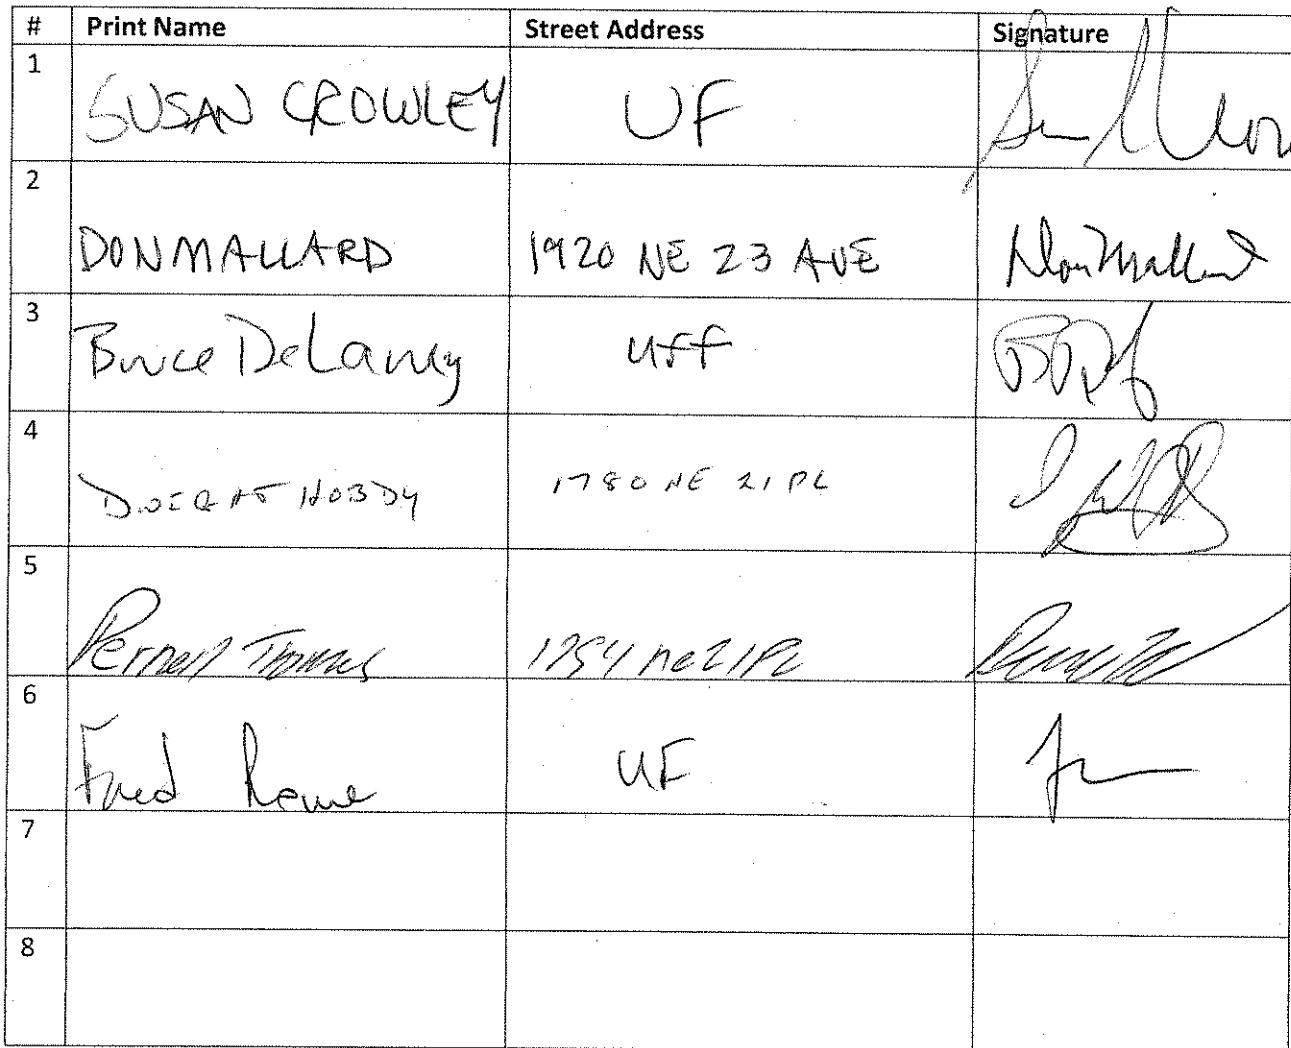 # Print Name Street Address Signature
1 SUSAN CROWLEY UF
2 DON MALLARD 1920 NE 23 AVE Don Mallard
3 Bruce DeLaney
4 HOBDY 1780 NE 21 PL
5 Thomas NE 21 PL
6 Fred UF
7
8